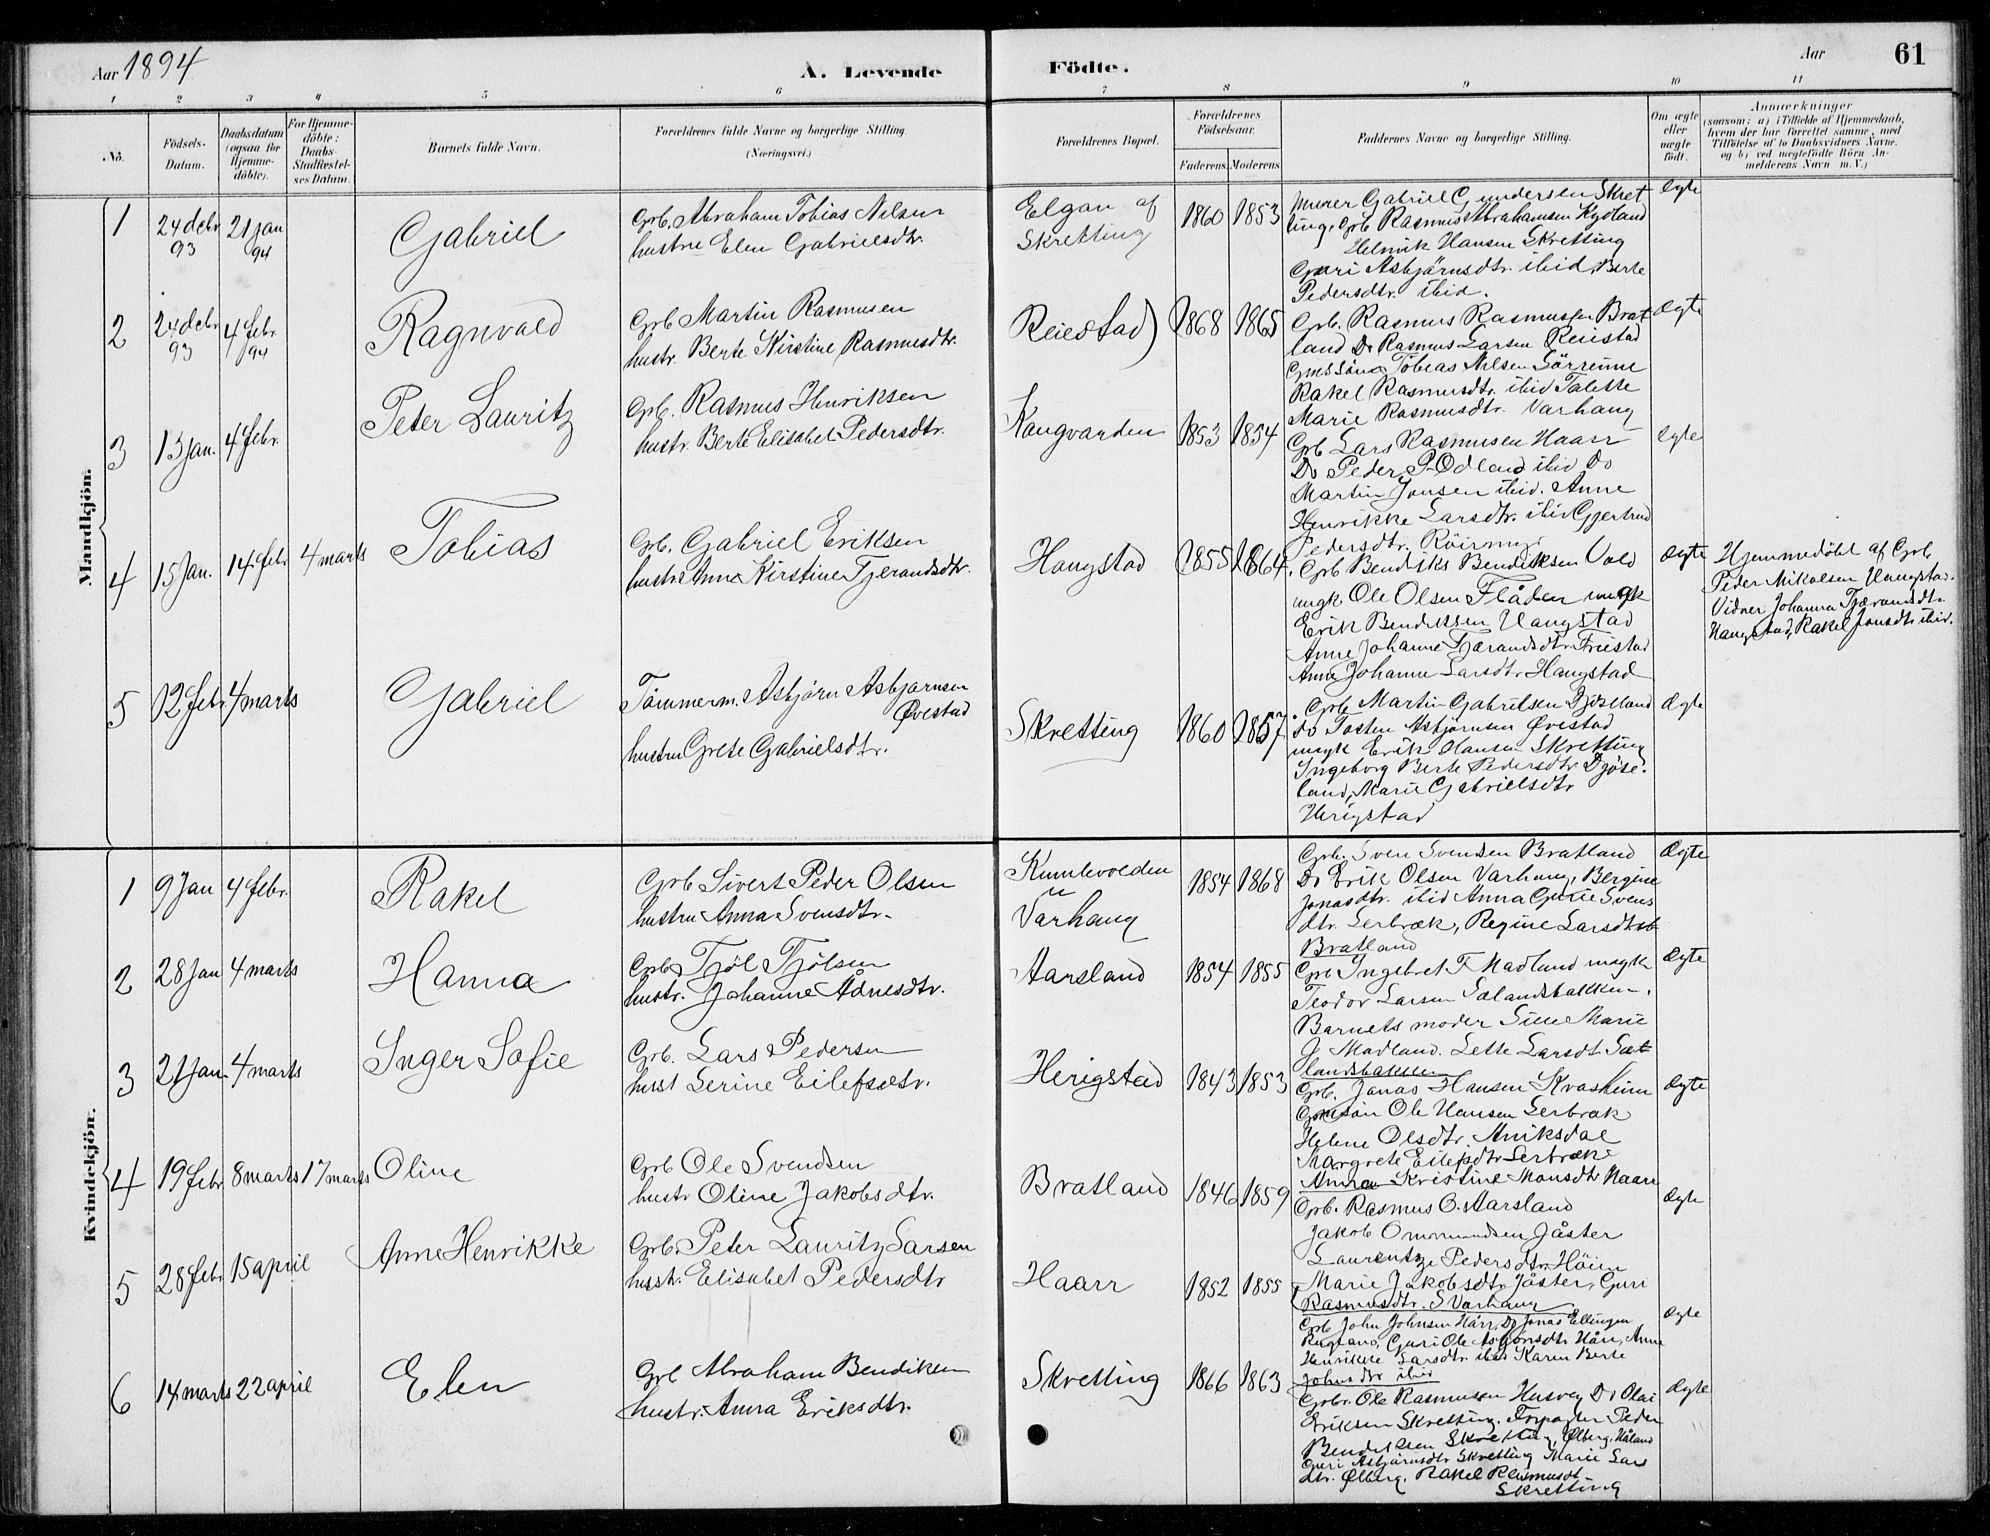 Aar 1894
A. Levende
Födte.
Aar
61
1
2
3
4
5
6
7
8
9
10
11
No.
Födsels-
Datum.
Daabsdatum
(ogsaa for
Hjemme-
döbte).
For Hjemme-
döbte:
Daabs-
Stadfæstel-
ses Datum.
Barnets fulde Navn.
Forældrenes fulde Navne og borgerlige Stilling.
(Næringsvei.)
Forældrenes Bopæl.
Forældrenes
Födselsaar.
Faderens.
Moderens.
Faddernes Navne og borgerlige Stilling.
Om ægte
eller
uægte
födt.
Anmærkninger
(saasom: a) i Tilfælde af Hjemmedaab,
hvem der har forrettet samme, med
Tilföielse af to Daabsvidners Navne,
og b) ved uægtefödte Börn An-
melderens Navn m. V.)
Mandkjön.
1
24 decbr
93
21 jan
94
Gabriel
Grb. Abraham Tobias Nilsen
hustru Elen Gabrielsdtr.
Elgan af
Skretting
1860
1853
Murer Gabriel Gundersen Skret
ting. Grb Rasmus Abrahamsen Kydland
Helmik Hansen Skretting
Guri Asbjörnsdtr. ibid, Berte
Pedersdtr. ibid.
Ægte
2
24 decbr
93
4 febr
94
Ragnvald
Grb Martin Rasmusen
hustr. Berte Kirstine Rasmusdtr.
Reiestad
1868
1865
Grb. Rasmus Rasmussen Brat
land Do Rasmus Larsen Reiestad
Tobias Nilsen Sörreime
Rakel Rasmusdtr. ibid Talette
Marie Rasmusdtr. Varhaug
Ægte
3
13 Jan.
4 febr.
Peter Lauritz
Grb. Rasmus Henriksen
hustr. Berte Elisabet Pedersdtr.
Kongvarden
1853
1854
Grb Lars Rasmusen Haarr
Do Peder P. Ødland ibid Do
Martin Jonsen ibid. Anne
Henrikke Larsdtr. ibid Gjertrud
Pedersdtr. Röirmyr
Ægte
4
15 Jan.
14 febr
4 marts
Tobias
Grb. Gabriel Eriksen
hustru Anne Kirstine Tjerandsdtr.
Haugstad
1855
1864
Grb Bendiks Bendiksen Vold
ungk Ole Olsen Flåden ungk
Erik Bendiksen Haugstad
Anne Johanne Tjærandsdtr. Friestad
Anne Johanne Larsdtr. Haugstad
Ægte
Hjemmedöbt af Grb.
Peder Mikalsen Haugstad.
Vidner Johanna Tjærandsdtr.
Haugstad, Rakel Jonsdtr ibid.
5
12 febr
4 marts
Gabriel
Tömmerm. Asbjörn Asbjørnsen
Øvestad
hustru Grete Gabrielsdtr.
Skretting
1860
1857
Grb. Martin Gabrielsen Djösland
do Tosten Asbjörnsen Øvestad
ungk Erik Hansen Skretting
Ingeborg Berte Pedersdtr Djöse-
land, Marie Gabrielsdtr
Herigstad
Ægte
Kvindekjön.
1
9 Jan
4 febr.
Rakel
Grb Sivert Peder Olsen
hustru Anna Svensdtr.
Kunlevolden
u
Varhaug
1854
1868
Grb. Sven Svendsen Bratland
Do Erik Olsen Varhaug, Bergine
Jonasdtr. ibid Anna Gurie Svens
dtr. Serbræk, Regine Larsdtr
Bratland
Ægte
2
28 Jan
4 marts
Hanna
Grb. Tjöl Tjölsen
hustr. Johanne Ådnesdtr.
Aarsland
1854
1855
Grb Ingebret T. Madland ungk
Teodor Larsen Sælandsbakken,
Barnets moder Sine Marie
J Madland. Lette Larsdtr Sæt
landsbakken
Ægte
3
21 Jan.
4 marts
Inger Sofie
Grb. Lars Pedersen
hust Serine Eilefsdtr.
Herigstad
1843
1853
Grb. Jonas Hansen Kvasheim
Ole Hansen Serbræk
Helene Olsdtr. Aniksdal
Margrete Eilefsdtr Serbræk
Anna Kristine Monsdtr Haarr
Ægte
4
19 febr
8 marts
17 marts
Oline
Grb Ole Svendsen
hustr Oline Jakobsdtr.
Bratland
1846
1859
Grb. Rasmus O. Aarsland
Jakob Ommundsen Jåster
Pedersdtr. Höien
Marie Jakobsdtr Jåster, Guri
Rasmusdtr. S Varhaug
Ægte
5
28 febr
15 april
Anne Henrikke
Grb. Peter Lauritz Larsen
hustr. Elisabet Pedersdtr
Haarr
1852
1855
Grb John Johnsen Hårr, Do Jonas Ellingsen
Hårr, Anne
Henrikke Larsdtr. ibid Karen Berte
Johnsdtr ibid
Ægte
6
14 marts
22 april
Elen
Grb Abraham Bendiksen
hustr. Anna Eriksdtr.
Skretting
1866
1863
Grbr. Ole Rasmussen Husvey Do Olai
Eriksen Skretting. Forpagter Peder
Bendiksen Skretting, Ølberg, Håland
Guri Asbjörnsdtr Skretting Marie Lars
dtr. Ølberg, Rakel Rasmusdt
Skretting
Ægte